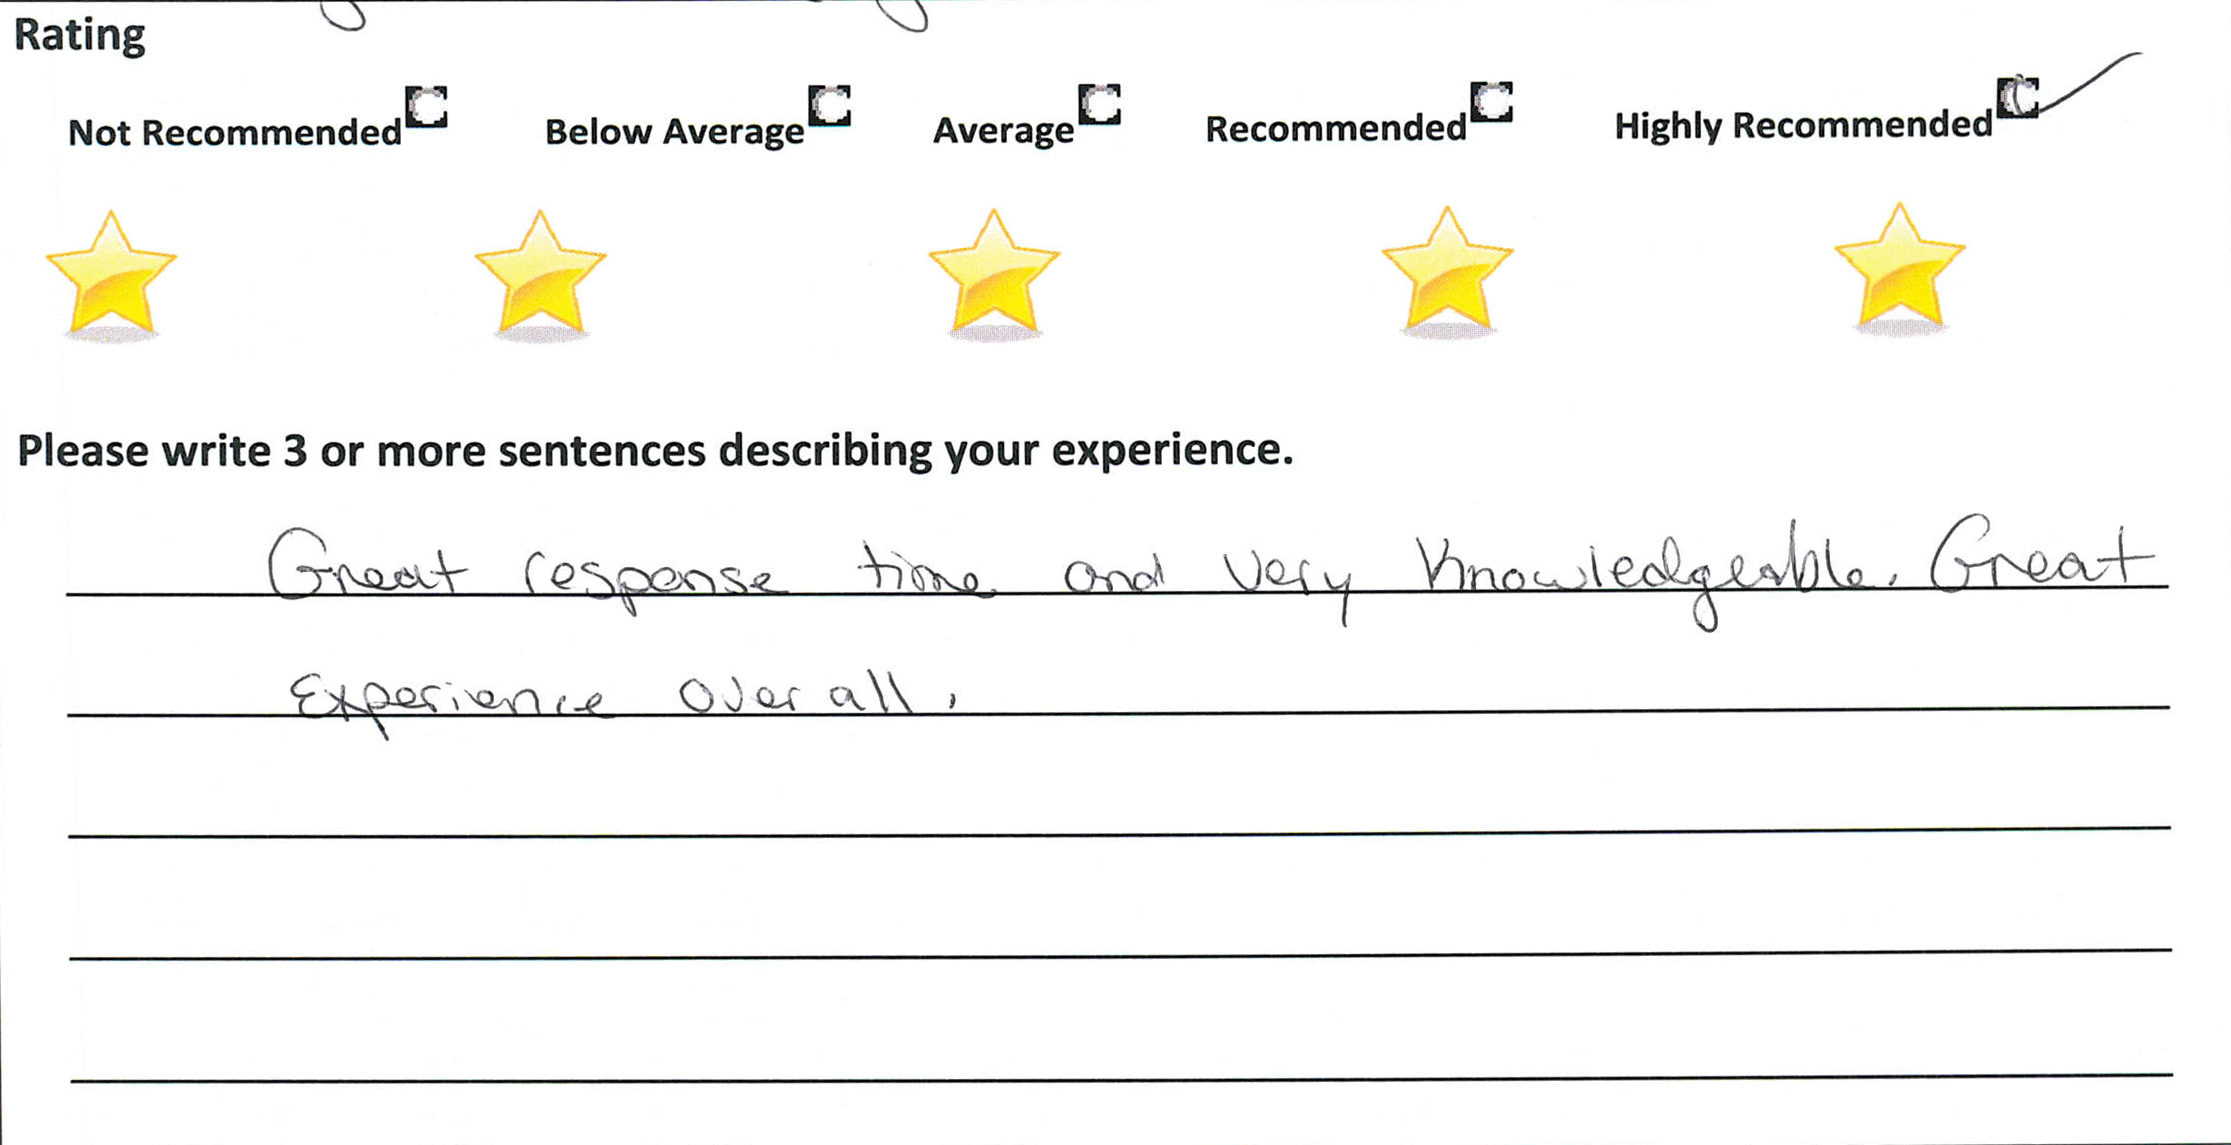 Rating
Not Recommended Below Average Average Recommended Highly Recommended
Please write 3 or more sentences describing your experience.
Great response time and very Knowledgeable. Great
Experience Over all.